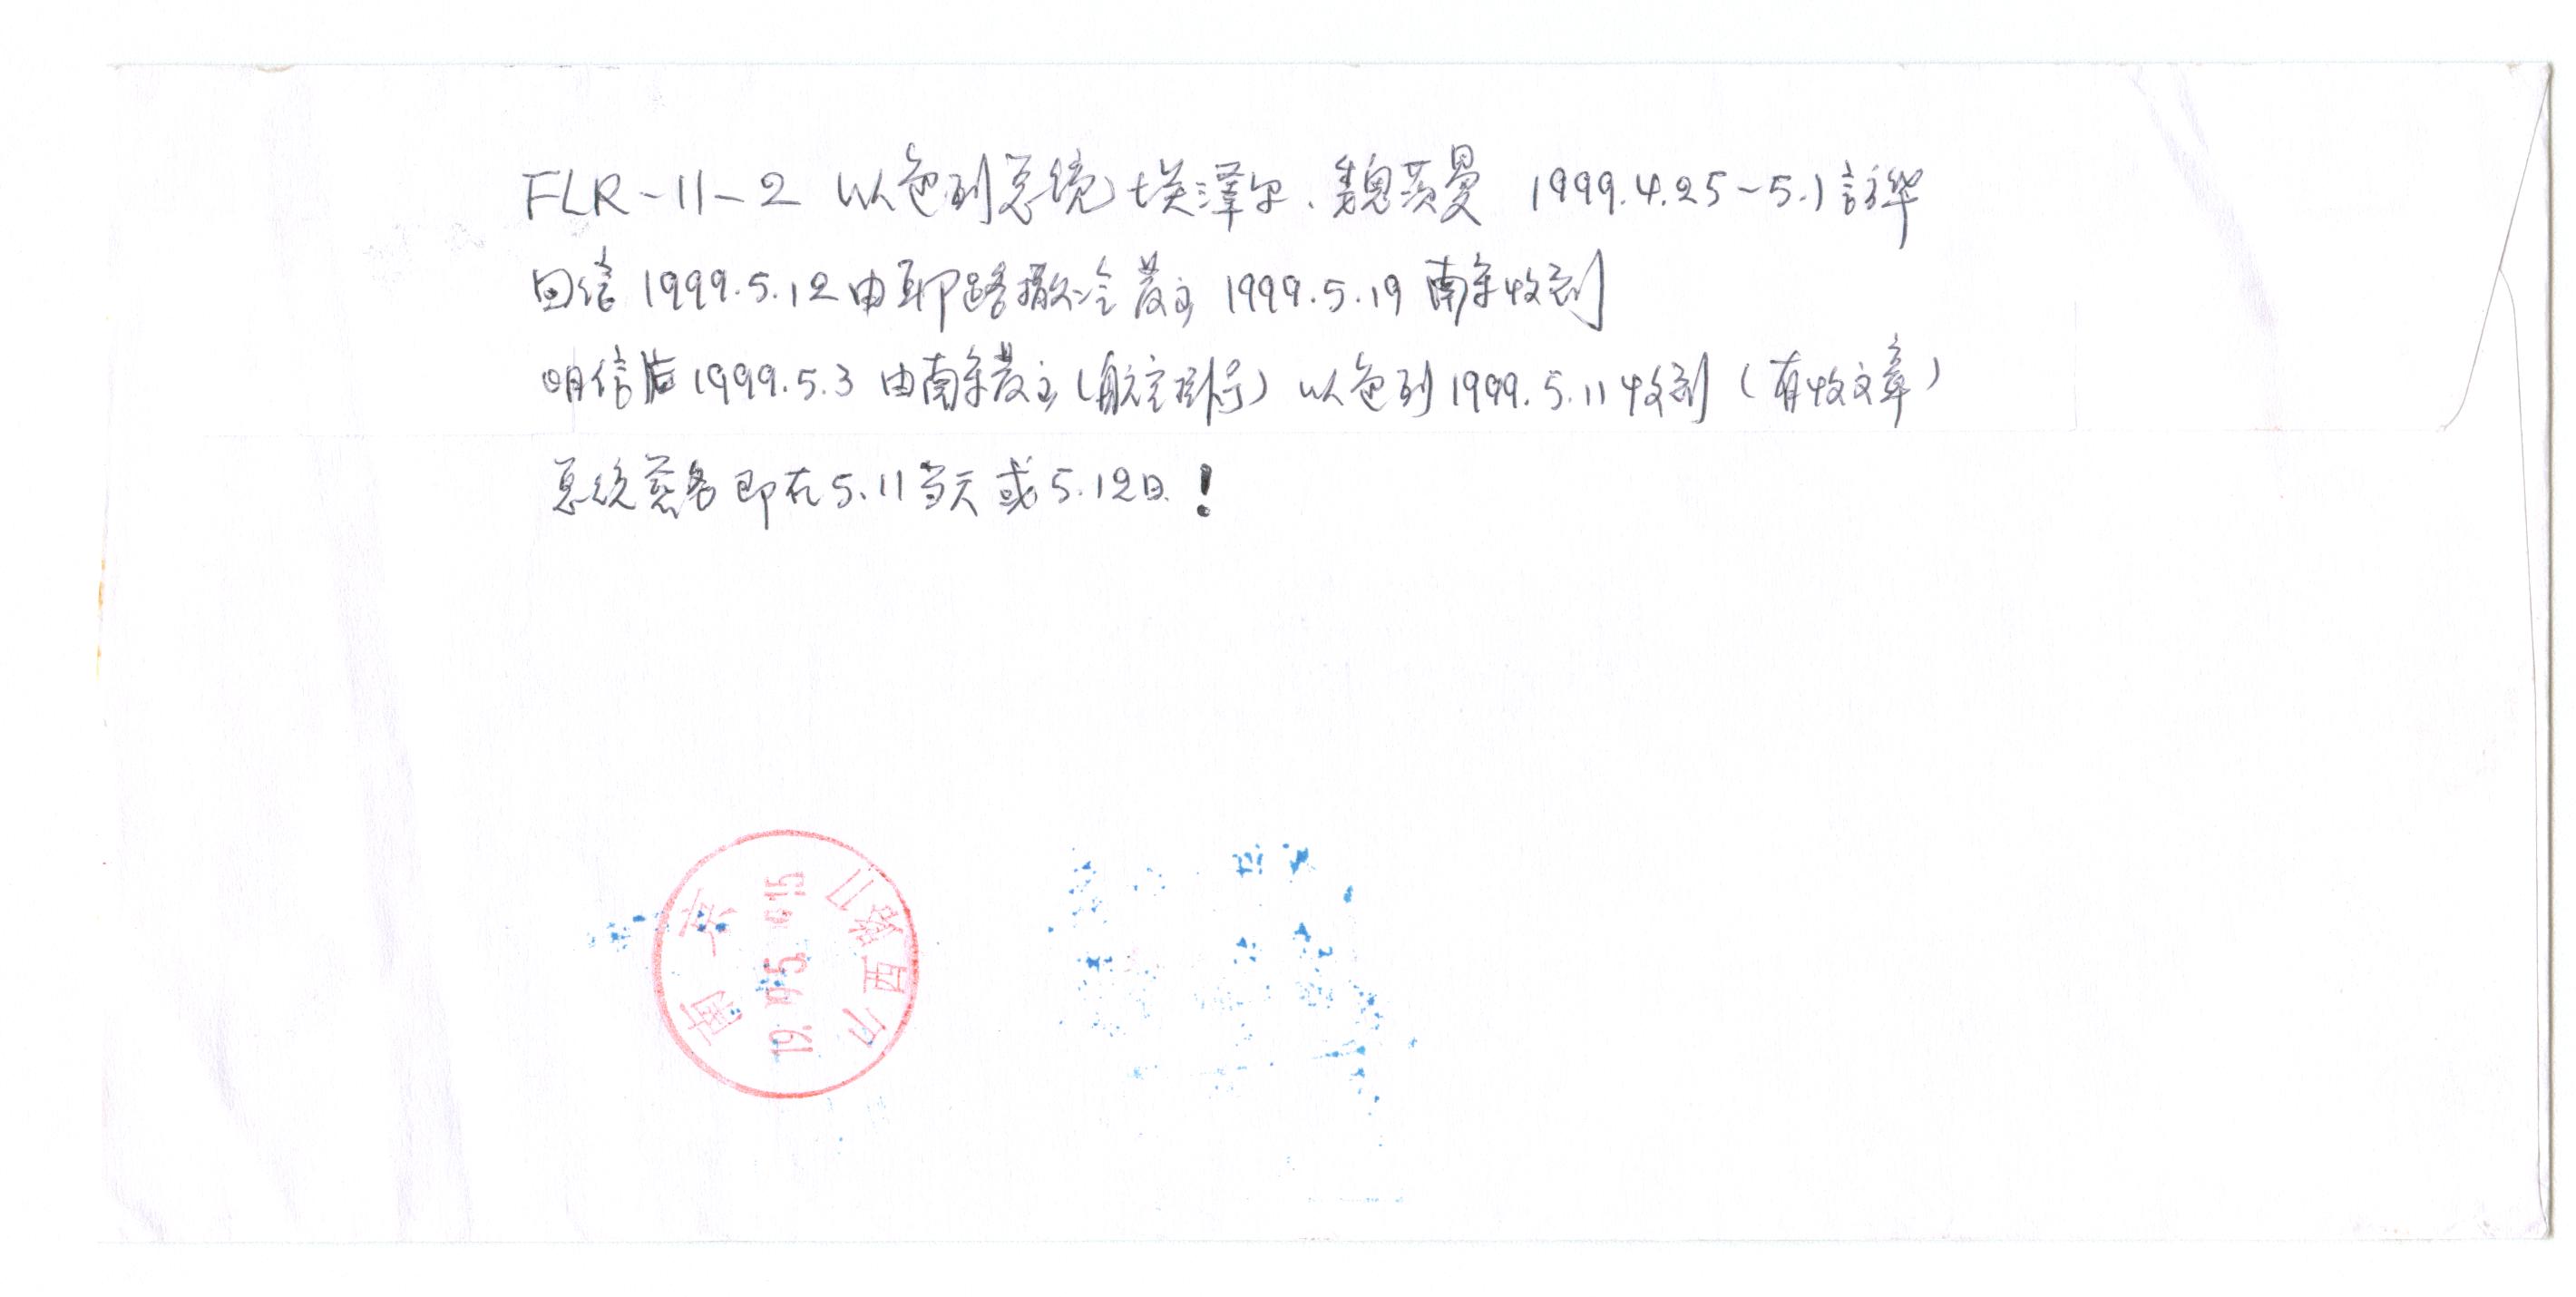 FLR-11-2 以色列总统埃泽尔.魏茨曼 1999.4.25~5.1訪华
回信 1999.5.12由耶路撒冷发出 1999.5.19 南京收到
明信片1999.5.3 由南京发出(航空挂号) 以色列1999.5.11收到(有收文章)
总统签名即在5.11当天或5.12日!
南京
山西路